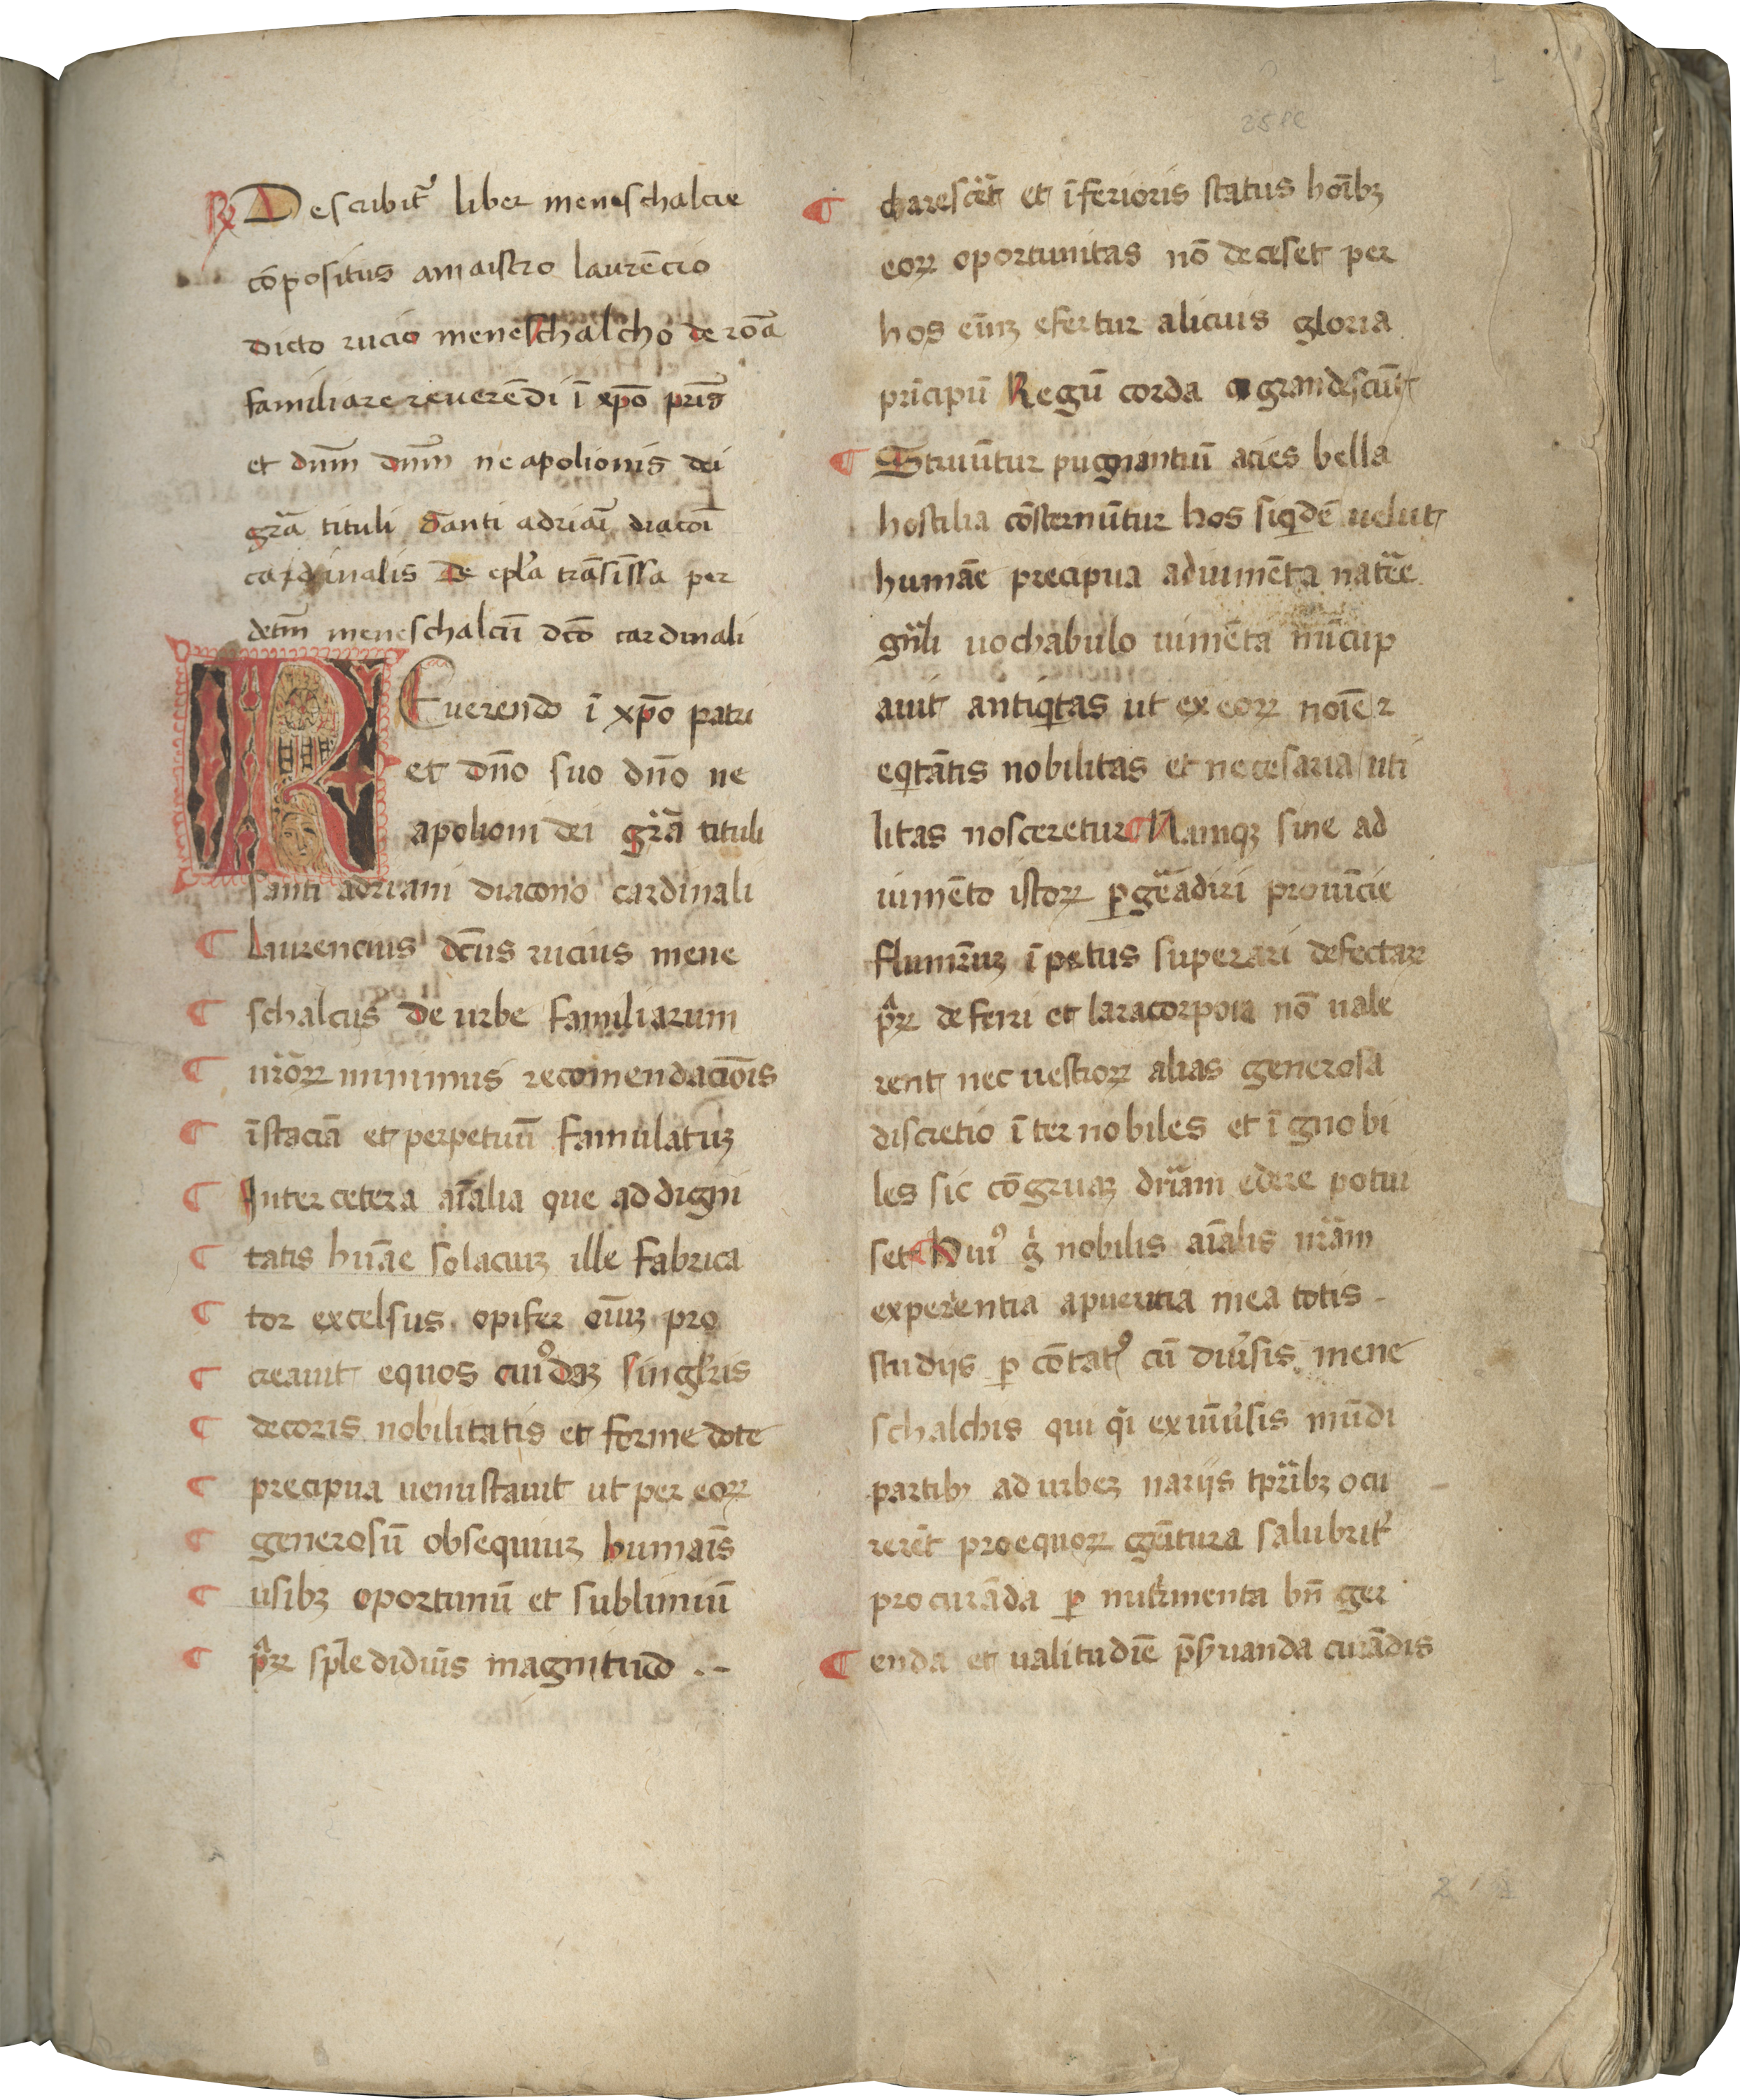 Describit᷑ liber meneschalcie
cōpositus amaistro laurēcio
dicto rucio meneschalcho de roā
familiare reuerēdi ī xp̄o pr̄is
et dnm̄ dnm̄ neapolionis dei
gr̄a tituli santi adriaī diacoī
cardinalis De epl̄a trāsissa per
detm̄ meneschalcū dc̄o cardinali
REuerendo ī xp̄o patri
et dn̄o suo dn̄o ne
apolioni dei gr̄a tituli
santi adriani diacono cardinali
¶ Laurencius dc̄us rucius mene
¶ schalcus de urbe familiarum
¶ ur̄oꝝ minimus recomendacōis
¶ īstaciā et perpetuū famulatuꝫ
¶ Inter cetera aīalia que ad digni
¶ tatis hūāe solaciuꝫ ille fabrica
¶ tor excelsus opifer oīuꝫ pro
¶ creauit equos cuiꝰdaꝫ singl̓ris
¶ decoris nobilitatis et forme dote
¶ precipua uenustauit ut per eoꝝ
¶ generosū obsequiuꝫ humaīs
¶ usibꝫ oportunū et sublimiū
¶ pr̄ꝝ sple didiuīs magnitudo .-
¶ charescēt et īferioris status hoībꝫ
eoꝝ oportunitas nō deceset per
hos eīuꝫ efertur alicuis gloria
prīcipū Regū corda agrandescūt
¶ Struūtur pugnantiū acies bella
hostilia cōsternūtur hos siqͥdē uelut
humāe precipua adiumēta natr̄e
gn̄li uochabulo iumēta nūcup
auit antiqͥtas ut ex eoꝝ noīe ꝛ
eqͥtātis nobilitas et necesaria uti
litas nosceretur ¶ Namqꝫ sine ad
iumēto istoꝝ ꝑgēadiri prouīcie
flumīuꝫ īpetus superari defectaꝝ
pr̄ꝝ deferri et laracorpora nō uale
rent nec uestioꝝ alias generosa
discretio īter nobiles et īgnobi
les sic cōgruaꝫ dr̄iam edere potui
set ¶ Huiꝰ g̊ nobilis aīalis ur̄am
experentia apueritia mea totis -
studijs ꝑ cōtatꝰ cū diu̓sis mene
schalchis qui qͥ ex uīu̓sis mūdi
partibꝫ ad urbeꝫ uariis tpr̄ibꝫ ocu
rerēt pro equoꝝ gētura salubrit᷑
procurāda ꝑ nutrimenta bn̄ ger
¶ enda et ualitudīe p̄s̓uanda curādis